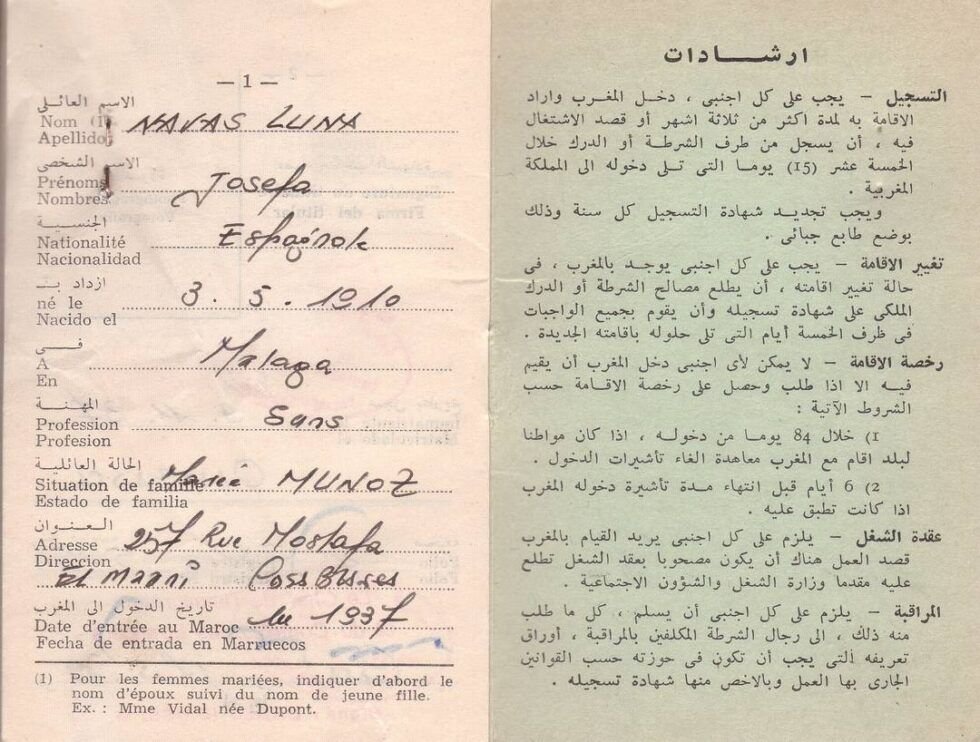 — 1 —
الاسم العائلى
Nom (1) NAVAS LUNA
Apellido
الاسم الشخصى
Prénoms Josefa
Nombres
الجنسيـــة
Nationalité Espagnole
Nacionalidad
ازداد بـــ
né le 3 . 5 . 1910
Nacido el
فـــى
A Malaga
En
المهنـــة
Profession Sans
Profesion
الحالة العائلية
Situation de famille Mariée MUNOZ
Estado de familia
العـنـــوان
Adresse 257 Rue Mostafa
Direccion
El Maani
تاريخ الدخول الى المغرب
Date d'entrée au Maroc en 1937
Fecha de entrada en Marruecos
(1) Pour les femmes mariées, indiquer d'abord le
nom d'époux suivi du nom de jeune fille.
Ex. : Mme Vidal née Dupont.
ارشـــادات
التسجيل – يجب على كل اجنبى ، دخـل المغرب واراد
الاقامة به لمدة اكثر من ثلاثة اشهر أو قصد الاشتغال
فيه ، أن يسجل من طرف الشرطة أو الدرك خلال
الخمسة عشر (15) يوما التى تـلى دخوله الى المملكة
المغربية .
ويجب تجديد شهادة التسجيل كل سنة وذلك
بوضع طابع جبائى .
تغيير الاقامة – يجب على كل اجنبى يوجد بالمغرب ، فى
حالة تغيير اقامته ، أن يطلع مصالح الشرطة أو الدرك
الملكى على شهادة تسجيله وأن يقوم بجميع الواجبات
فى ظرف الخمسة أيام التى تلى حلوله باقامته الجديدة .
رخصة الاقامة – لا يمكن لأى اجنبى دخل المغرب أن يقيم
فيه الا اذا طلب وحصل على رخصة الاقـامة حسب
الشروط الآتية :
1) خلال 84 يوما من دخوله ، اذا كان مواطنا
لبلد اقام مع المغرب معاهدة الغاء تأشيرات الدخول .
2) 6 أيام قبل انتهاء مدة تأشيرة دخوله المغرب
اذا كانت تطبق عليه .
عقدة الشغل – يلزم على كل اجنبى يريد القيام بالمغرب
قصد العمل هناك أن يكون مصحوبا بعقد الشغل تطلع
عليه مقدما وزارة الشغل والشؤون الاجتماعية .
المراقبة – يلزم على كل اجنبى أن يسلم ، كل ما طلب
منه ذلك ، الى رجال الشرطة المكلفين بالمراقبة ، أوراق
تعريفه التى يجب أن تكون فى حوزته حسب القوانين
الجارى بها العمل وبالاخص منها شهادة تسجيله .